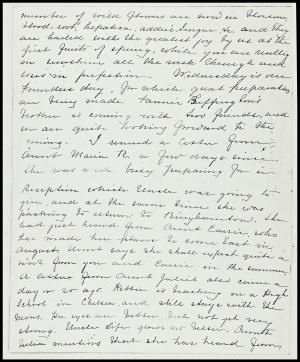 number of wild flowers are now in blossom,
blood-root, hepatica, adder's tongue &c and they
are hailed with the greatest joy by us as the
first fruits of spring, while you are really
in sunshine all the while
warm Wednesday is our
Founders day, for which great preparations
are being made. Fannie Buffington's
brother is coming with two friends, and
we are quite looking forward to the
evening. I received a letter from
Aunt Maria R. a few days since
She was very busy preparing for a
Reception which Uncle was going to
give, and at the same time she was
packing to return to Binghamton. She
had just heard from Aunt Carrie, who
has made her plans to come East in
August. Aunt says she shall expect quite a
visit from you and Carrie in the summer.
A letter from Aunt Juliet also came a
day or so ago. Hettie is teaching in a High
School in Chelsea and still stays with the
Her eyes are better but not yet very
strong. Uncle is no better. Aunt
Julia mentions that she has heard from